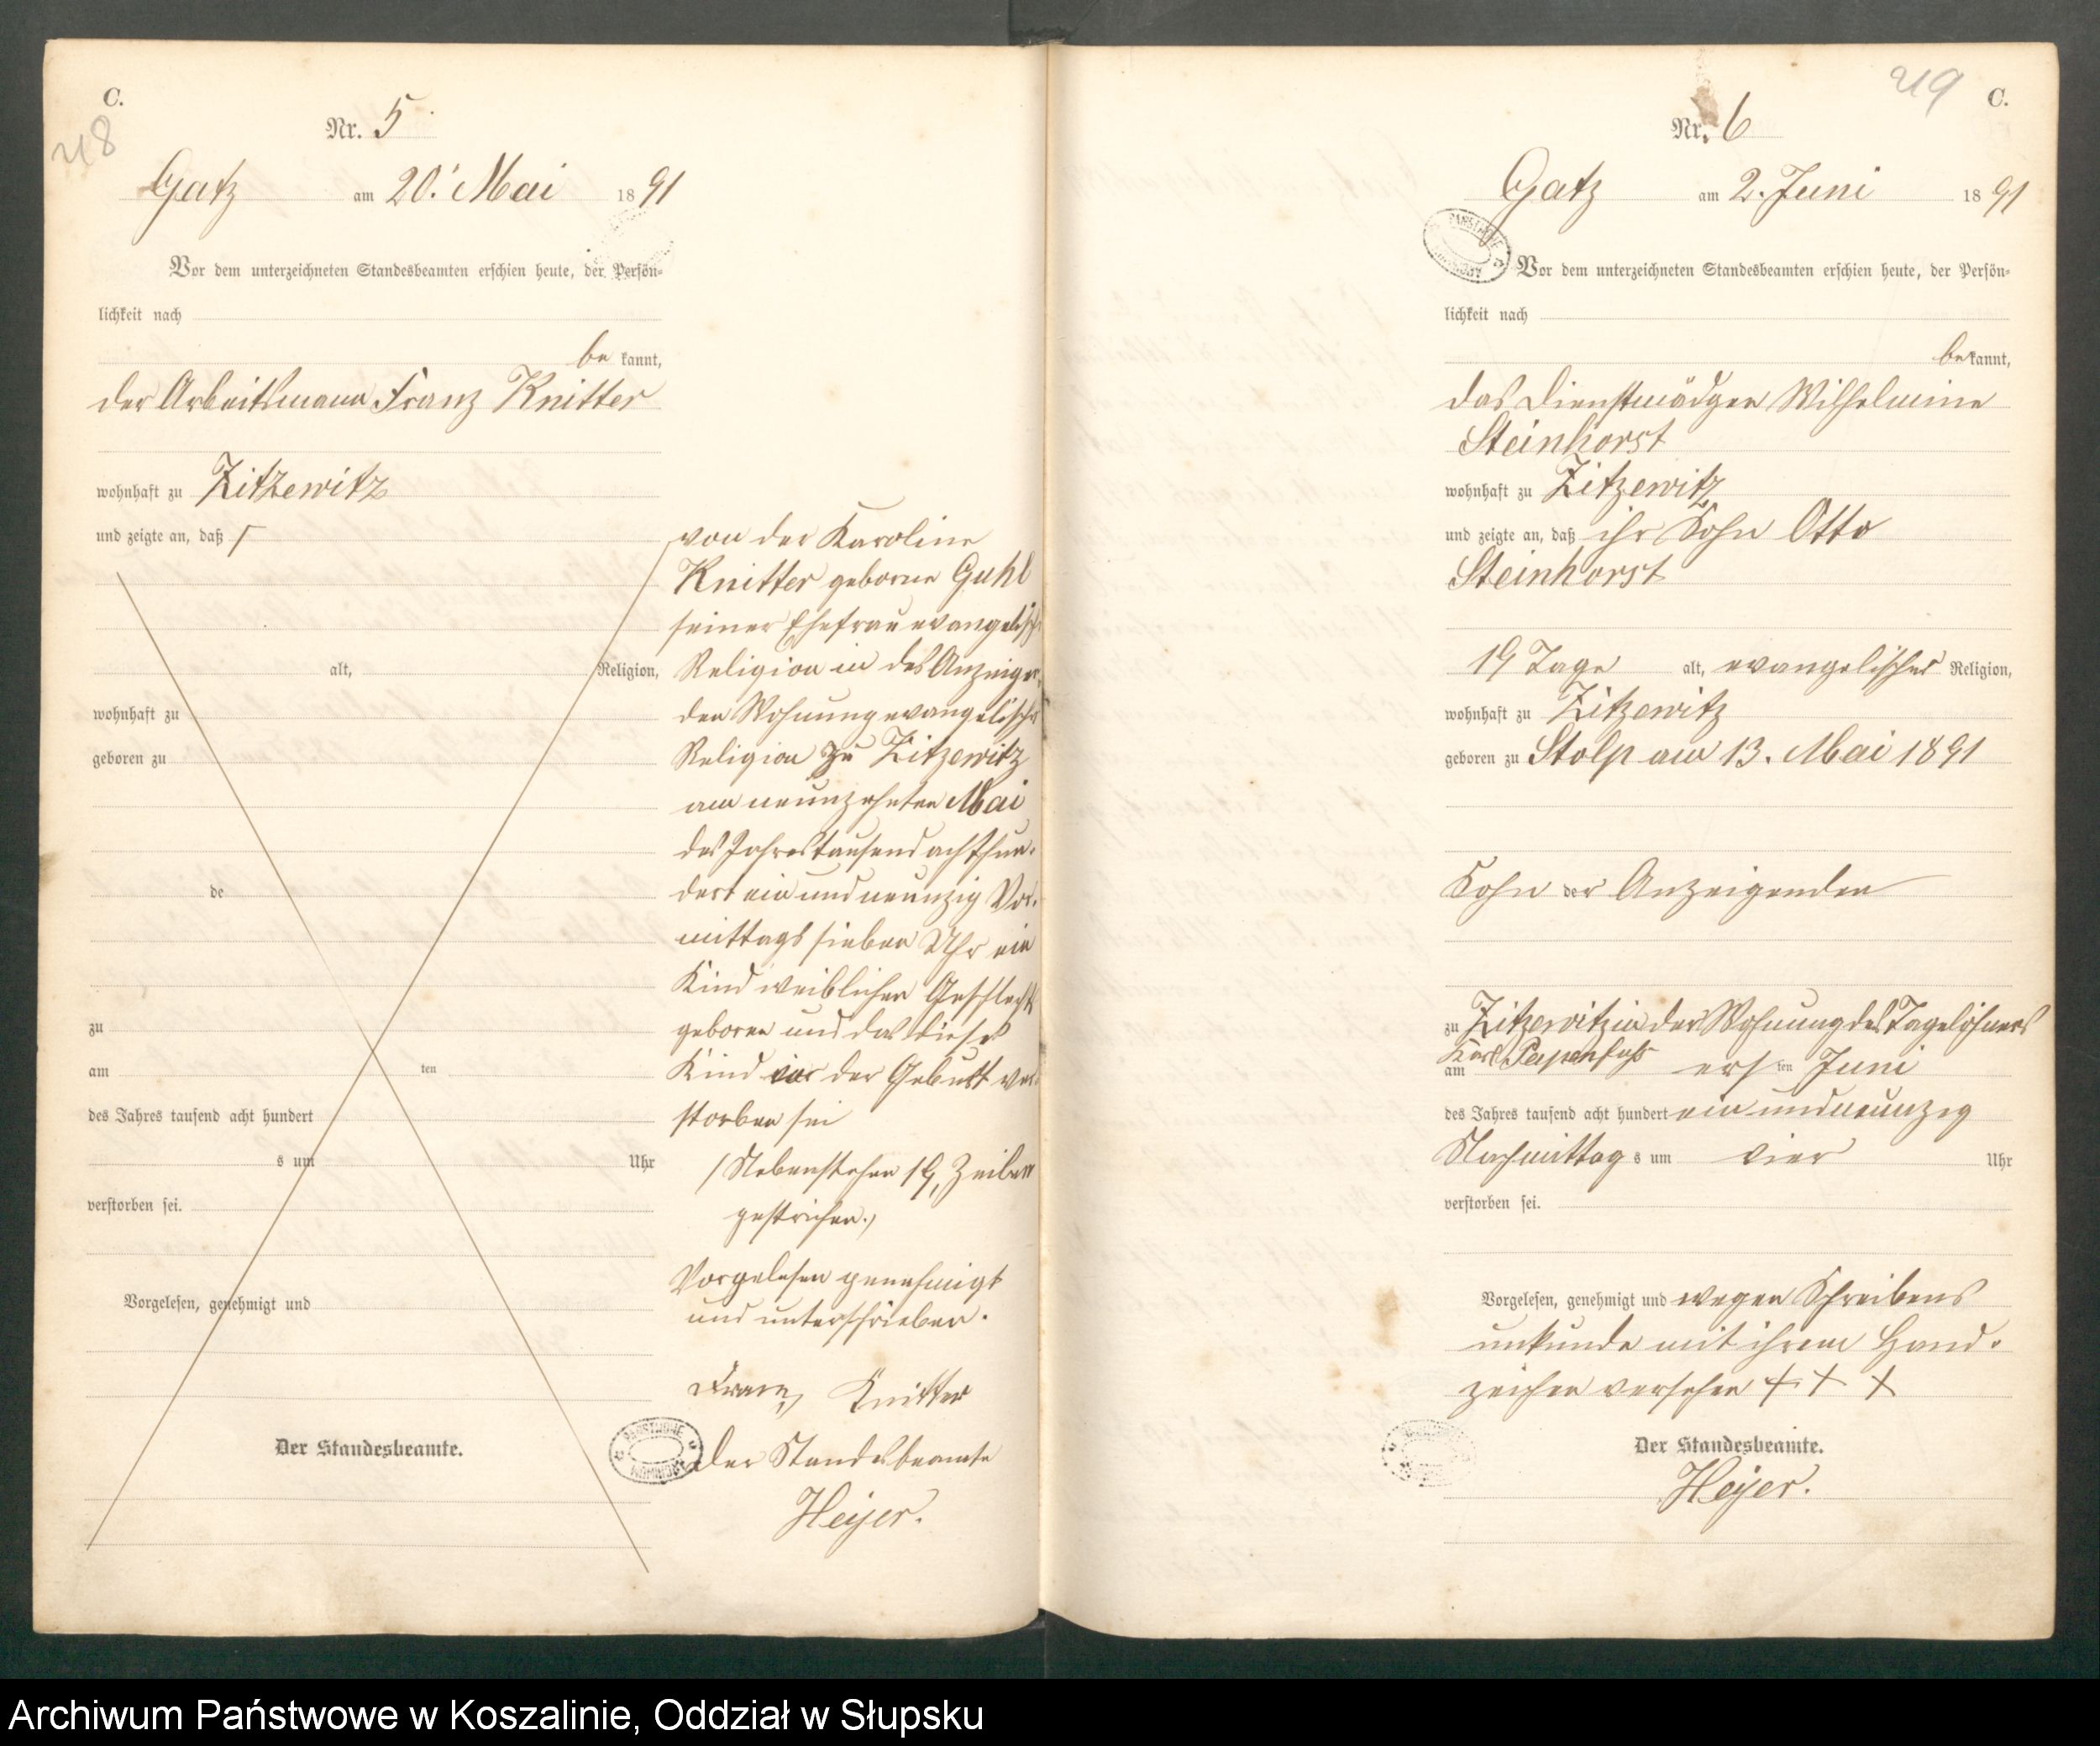 C.
218
Nr. 5
Gatz am 20. Mai 1891
Vor dem unterzeichneten Standesbeamten erschien heute, der Persön-
lichkeit nach
be kannt,
der Arbeitsmann Franz Knitter
wohnhaft zu Zitzewitz
und zeigte an, daß
alt, Religion,
wohnhaft zu
geboren zu
de
zu
am ten
des Jahres tausend acht hundert
s um Uhr
verstorben sei.
Vorgelesen, genehmigt und
Der Standesbeamte.
von der Karoline
Knitter geborne Guhl
seiner Ehefrau evangelisch
Religion in des Anzeigen-
den Wohnung evangelischer
Religion zu Zitzewitz
am neunzehnten Mai
des Jahres tausend achthun-
dert ein und neunzig Vor-
mittags sieben Uhr ein
Kind weiblichen Geschlechts
geboren und das dieses
Kind vor der Geburt ver-
storben sei
(Nebenstehen 19, Zeilen
gestrichen.)
Vorgelesen genehmigt
und unterschrieben.
Franz Knitter
Der Standesbeamte
Heyer.
219 C.
Nr. 6
Gatz am 2. Juni 1891
Vor dem unterzeichneten Standesbeamten erschien heute, der Persön-
lichkeit nach
be kannt,
das Dienstmädgen Wilhelmine
Steinhorst
wohnhaft zu Zitzewitz
und zeigte an, daß ihr Sohn Otto
Steinhorst
19 Tage alt, evangelischer Religion,
wohnhaft zu Zitzewitz
geboren zu Stolp am 13. Mai 1891
Sohn der Anzeigenden
zu Zitzewitz in der Wohnung des Tagelöhners
Karl Papenfuhs
am ersten Juni
des Jahres tausend acht hundert ein und neunzig
Nachmittags um vier Uhr
verstorben sei.
Vorgelesen, genehmigt und wegen Schreibens
unkunde mit ihrem Hand-
zeichen versehen + + +
Der Standesbeamte.
Heyer.
Archiwum Państwowe w Koszalinie, Oddział w Słupsku